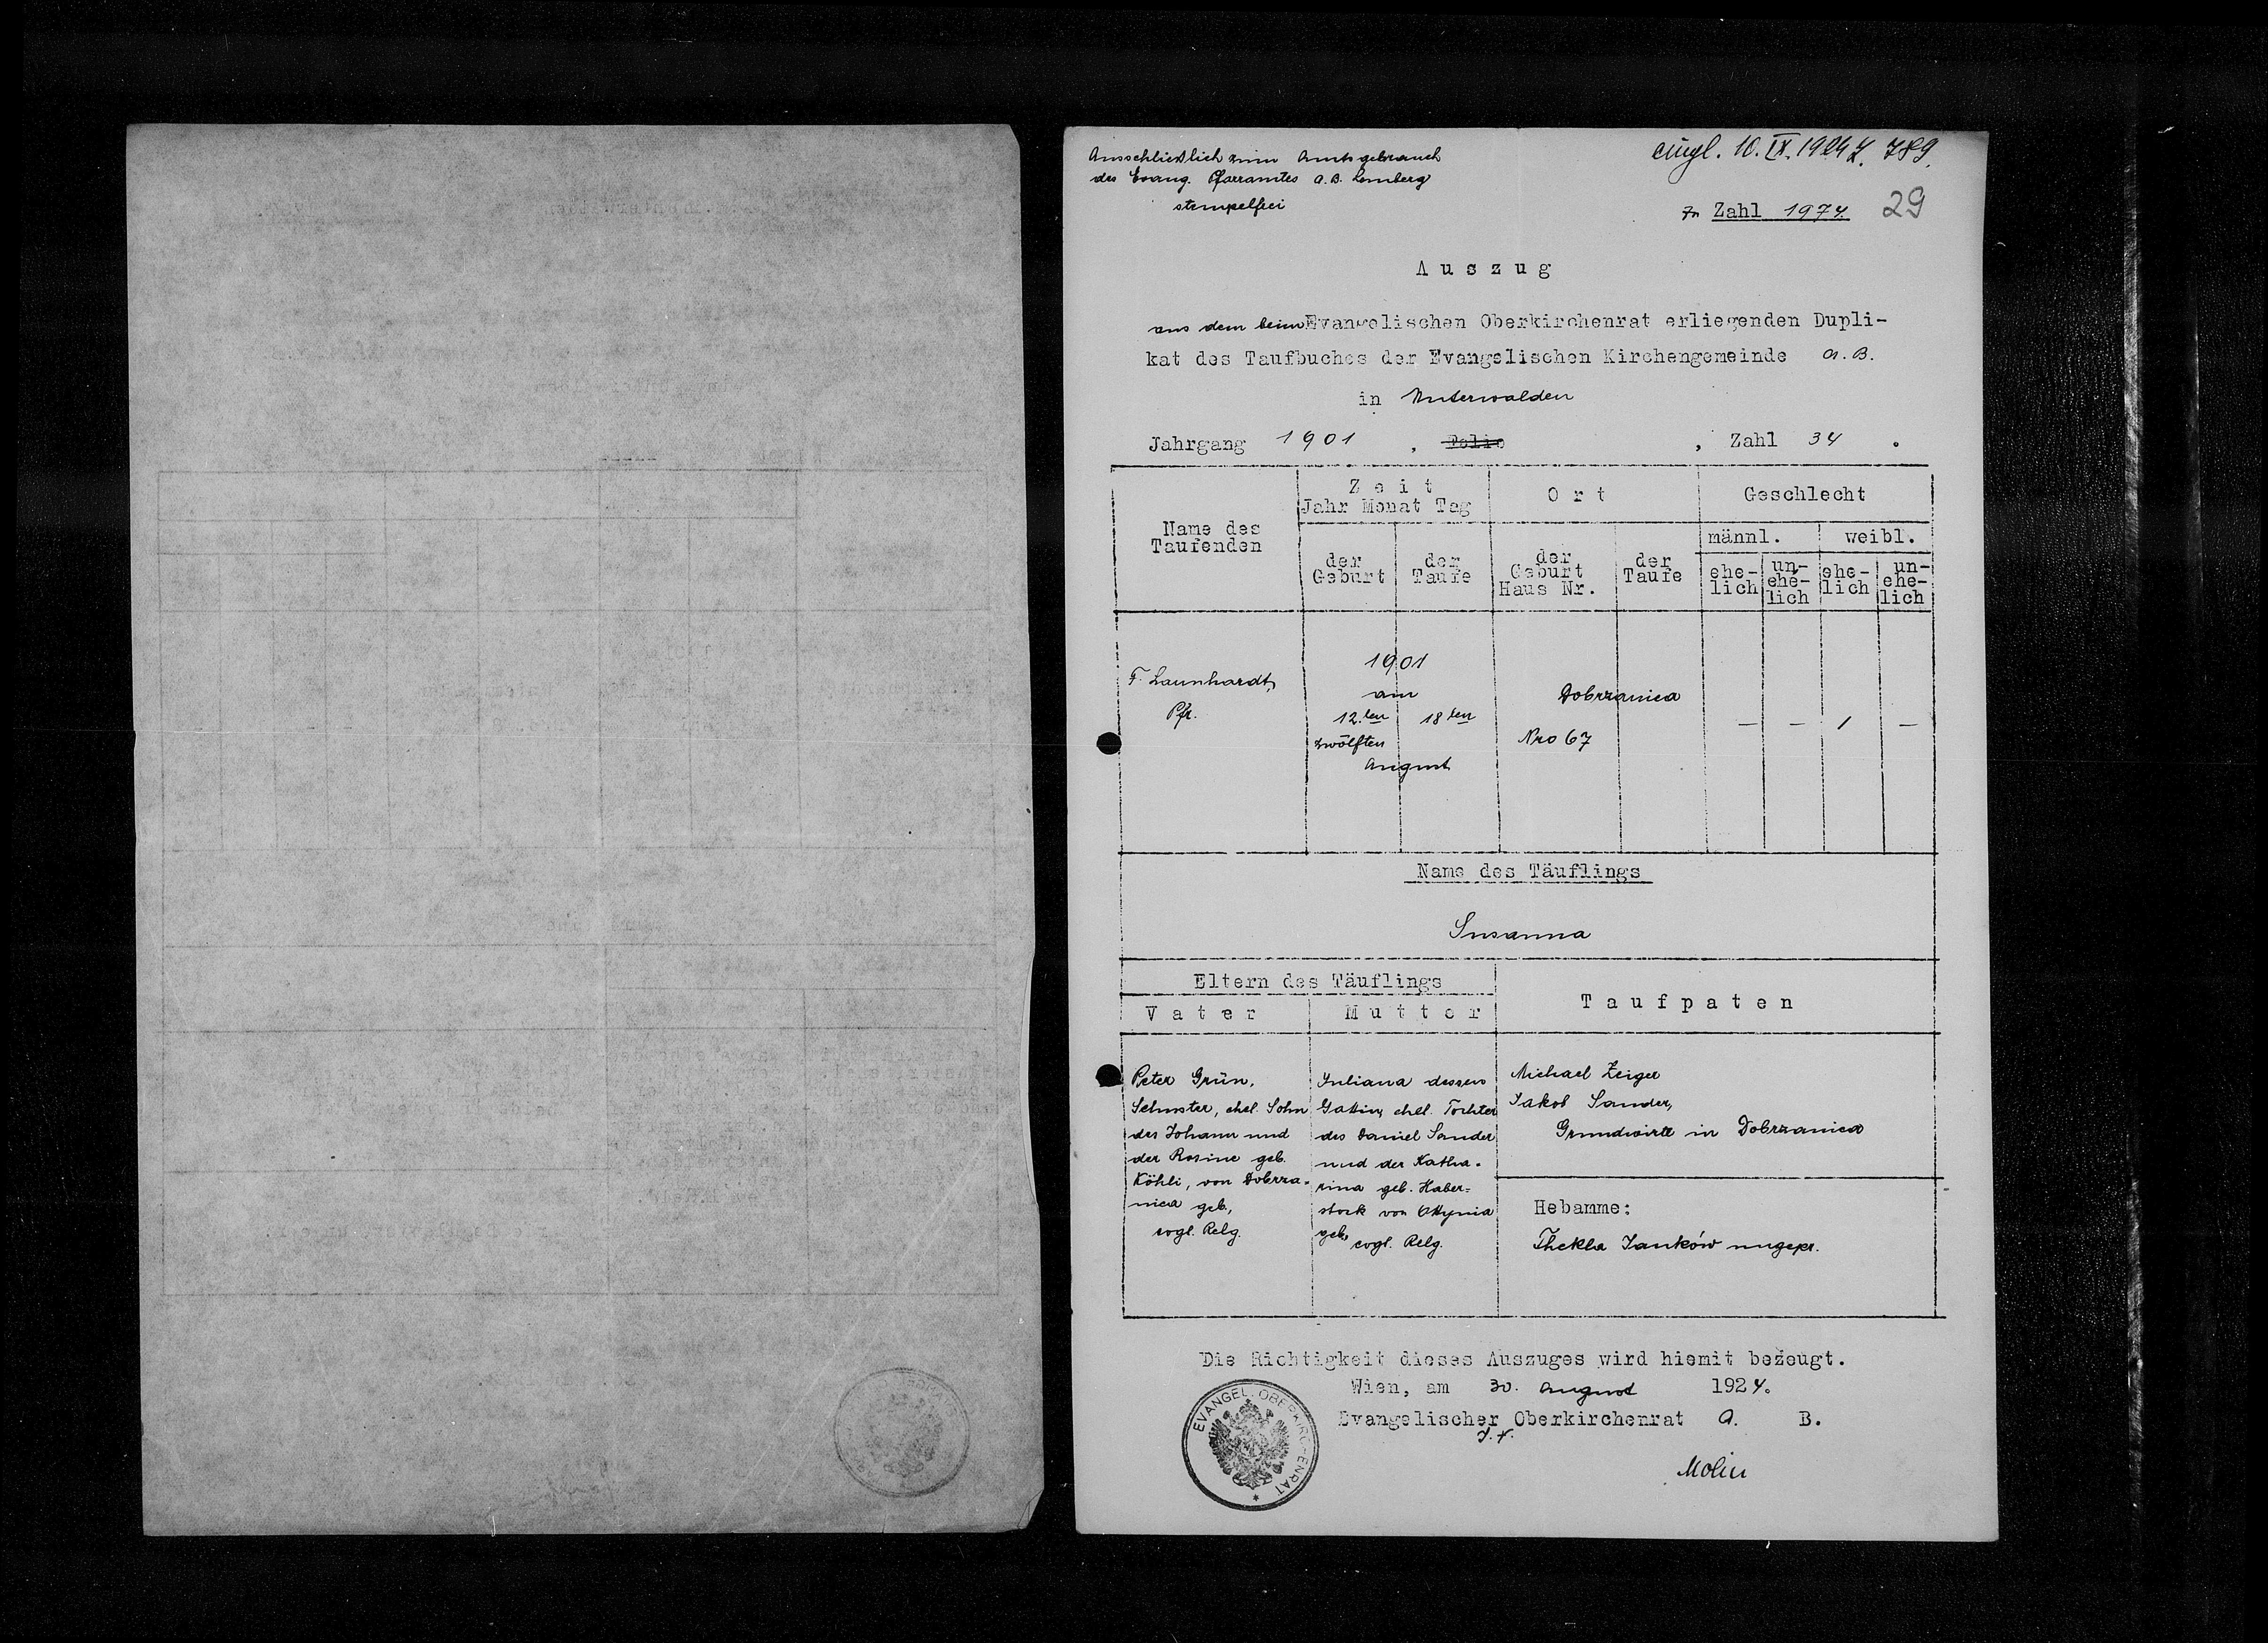 Ausschließlich zum Amtsgebrauch
des Evang. Pfarramtes A.B. Lemberg
stempelfrei
eingl. 10.IX.1924 Z. 789.
Zu Zahl 1974. 29
Auszug
aus dem beim Evangelischen Oberkirchenrat erliegenden Dupli-
kat des Taufbuches der Evangelischen Kirchengemeinde A.B.
in Unterwalden
Jahrgang 1901 , Folio , Zahl 34 .
Name des
Taufenden
Zeit
Jahr Monat Tag
der
Geburt
der
Taufe
Ort
der
Geburt
Haus Nr.
der
Taufe
Geschlecht
männl. weibl.
ehe-
lich
un-
ehe-
lich
ehe-
lich
un-
ehe-
lich
F. Launhardt,
Pfr.
1901
am
12.ten 18ten
zwölften
August
Dobrzanica
Nro 67
— — 1 —
Name des Täuflings
Susanna
Eltern des Täuflings
Vater
Mutter
Taufpaten
Peter Grün,
Schuster, ehel. Sohn
des Johann und
der Rosine geb.
Köhli, von Dobrza-
nica geb.,
evgl. Relg.
Juliana dessen
Gattin, ehel. Tochter
des Daniel Sander
und der Katha-
rina geb. Haber-
stock von Ottynia
geb., evgl. Relg.
Michael Zeiger
Jakob Sander,
Grundwirte in Dobrzanica
Hebamme:
Thekla Janków ungepr.
Die Richtigkeit dieses Auszuges wird hiemit bezeugt.
Wien, am 30. August 1924.
Evangelischer Oberkirchenrat A. B.
EVANGEL. OBERKIRCHENRAT